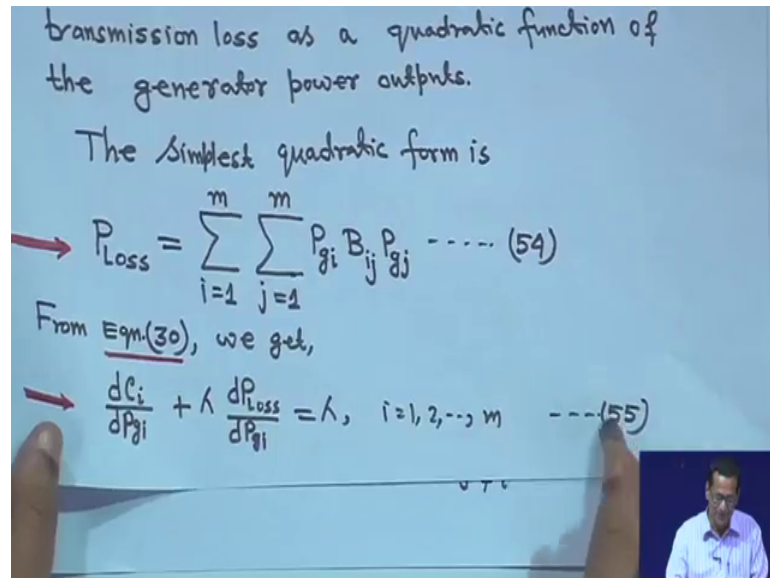 transmission loss as a quadratic function of
the generator power outputs.
The simplest quadratic form is
P_Loss = \sum_{i=1}^{m} \sum_{j=1}^{m} P_{gi} B_{ij} P_{gj} ----- (54)
From Eqn.(30), we get,
\frac{dC_i}{dP_{gi}} + λ \frac{dP_{Loss}}{dP_{gi}} = λ, i=1, 2, --, m ----(55)